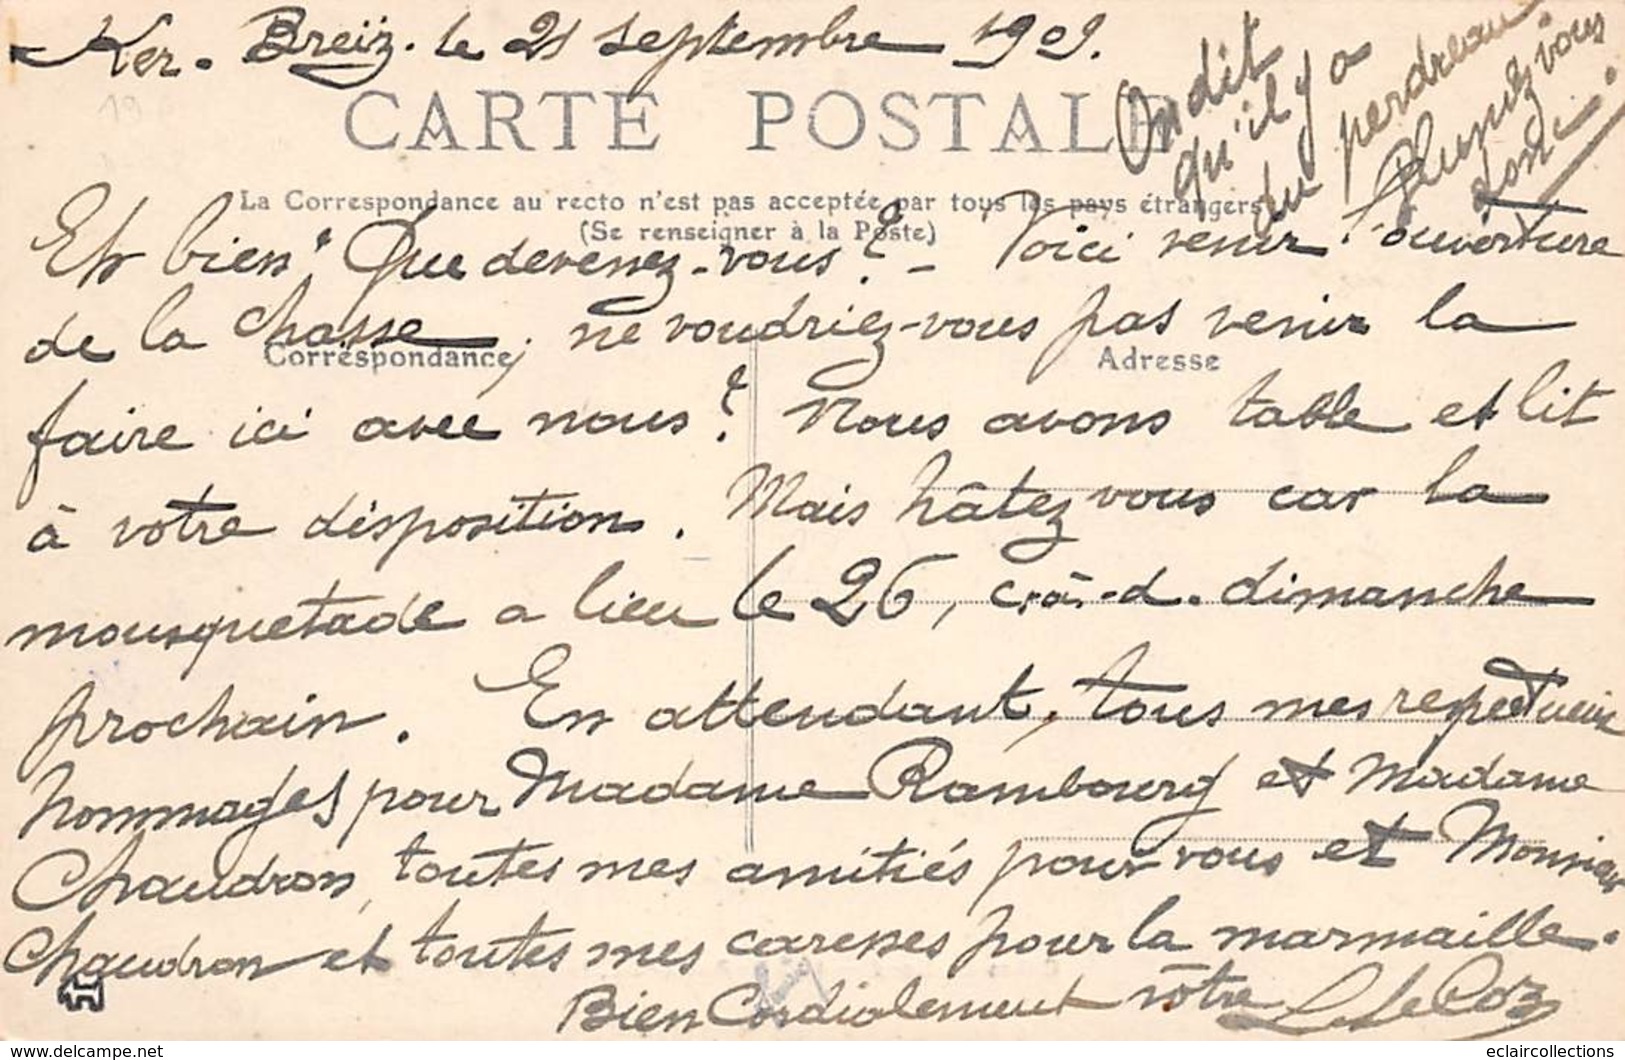 Ker. Breiz. le 21 septembre 1909.
On dit
qu'il y a
du perdreau
Plumez vous
donc.
CARTE POSTALE
La Correspondance au recto n'est pas acceptée par tous les pays étrangers
(Se renseigner à la Poste)
Eh bien! Que devenez-vous? - Voici venir l'ouverture
de la chasse, ne voudriez-vous pas venir la
Correspondance
Adresse
faire ici avec nous? Nous avons table et lit
à votre disposition. Mais hâtez vous car la
mousquetade a lieu le 26, c.à.-d. dimanche
prochain. En attendant, tous mes respectueux
hommages pour Madame Rambourg et Madame
Chaudron, toutes mes amitiés pour vous et Monsieur
Chaudron et toutes mes caresses pour la marmaille.
Bien Cordialement vôtre L. Le Coz
delcampe.net
eclaircollections